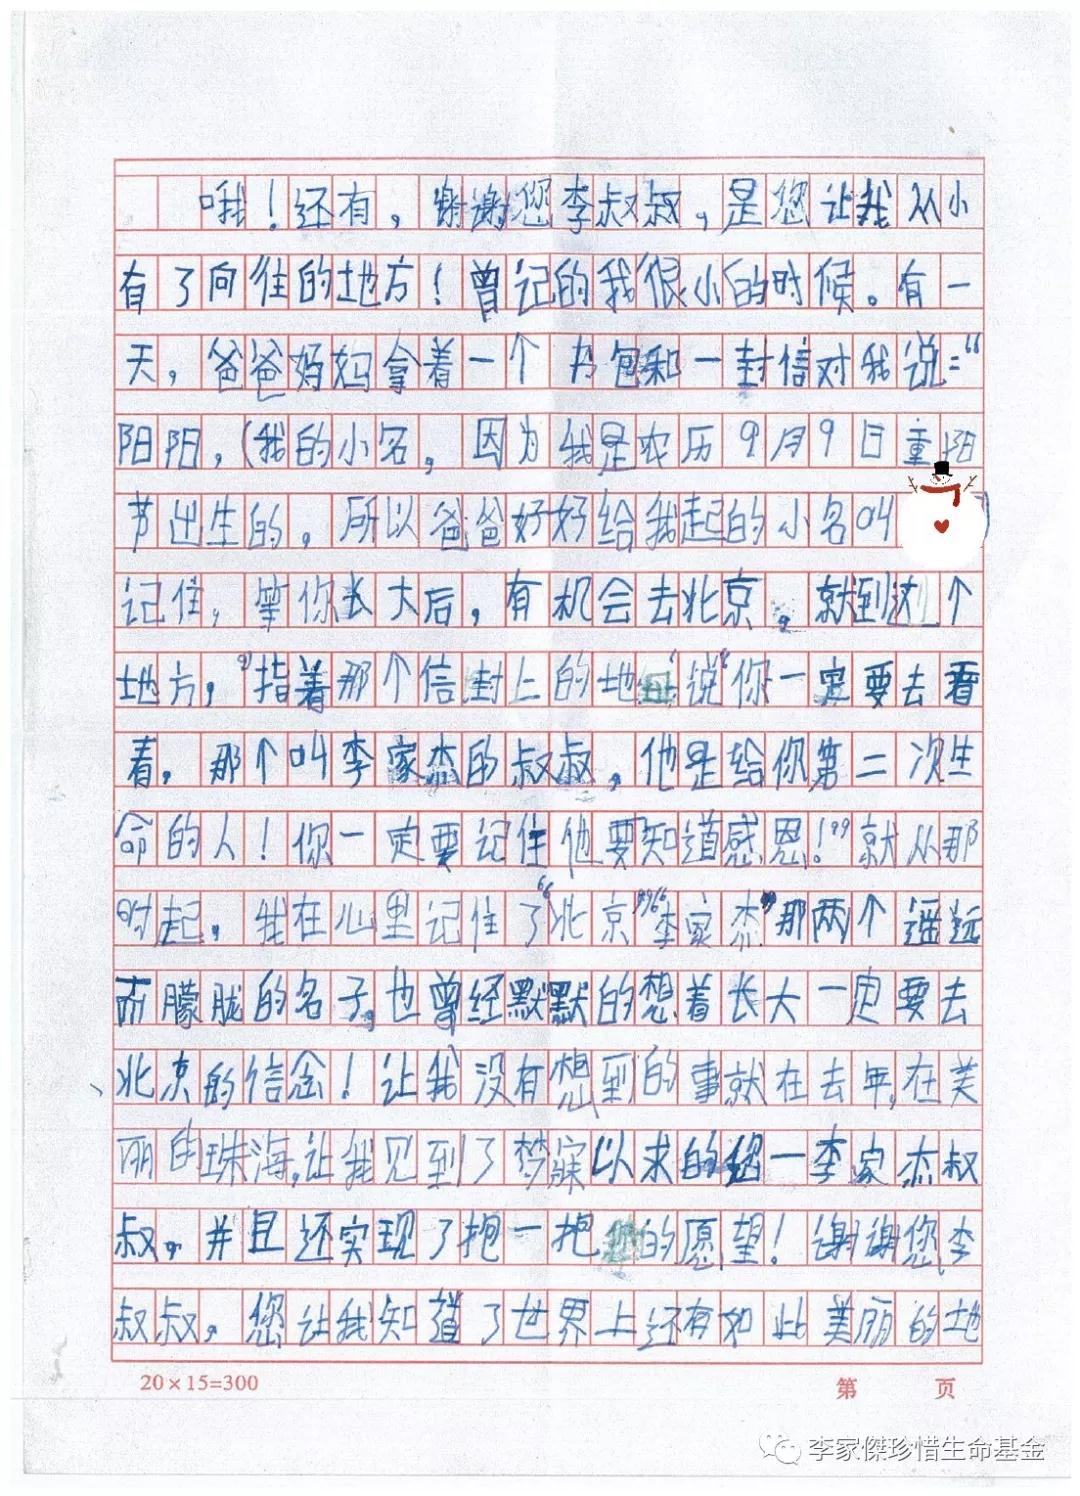 哦！还有，谢谢您李叔叔，是您让我从小
有了向往的地方！曾记的我很小的时候。有一
天，爸爸妈妈拿着一个书包和一封信对我说：“
阳阳，（我的小名，因为我是农历9月9日重阳
节出生的，所以爸爸妈妈给我起的小名叫 ）
记住，等你长大后，有机会去北京，就到这个
地方，”指着那个信封上的地 说“你一定要去看
看，那个叫李家杰的叔叔，他是给你第二次生
命的人！你一定要记住他要知道感恩！”就从那
时起，我在心里记住了“北京”“李家杰”那两个遥远
而朦胧的名子，也曾经默默的想着长大一定要去
北京的信念！让我没有想到的事就在去年，在美
丽的珠海，让我见到了梦寐以求的您一李家杰叔
叔，并且还实现了抱一抱 的愿望！谢谢您，李
叔叔，您让我知道了世界上还有如此美丽的地
20×15=300
第 页
李家傑珍惜生命基金